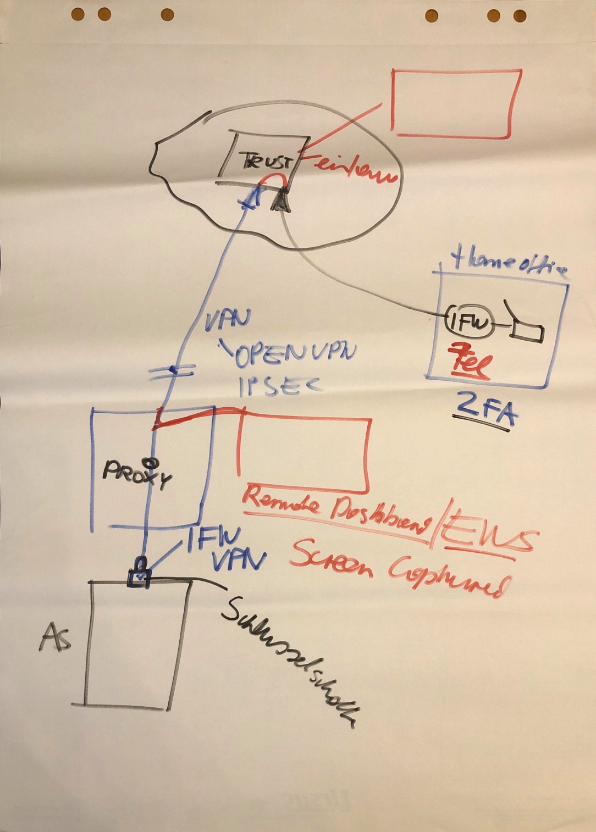 TRUST
Homeoffice
IFW
Tel
2FA
VPN
OPENVPN
IPSEC
PROXY
Remote Dashboard/EWS
Screen Captured
IFW
VPN
AS
Schlüsselschalter